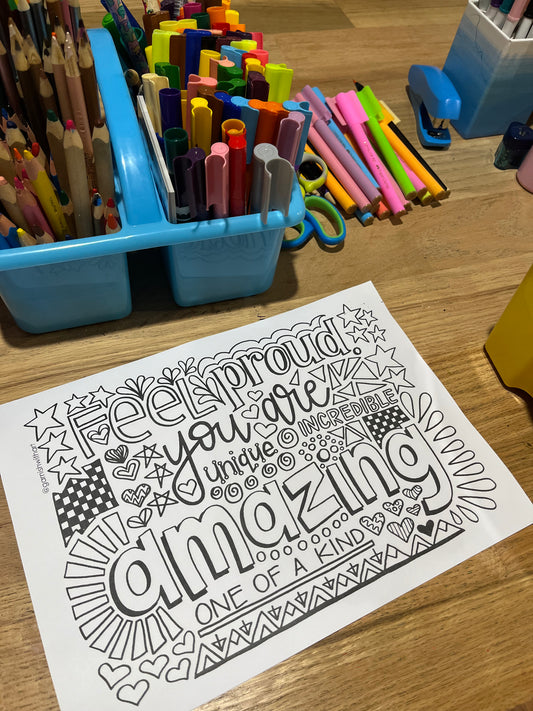 Feel proud.
you are
unique INCREDIBLE
amazing
ONE OF A KIND